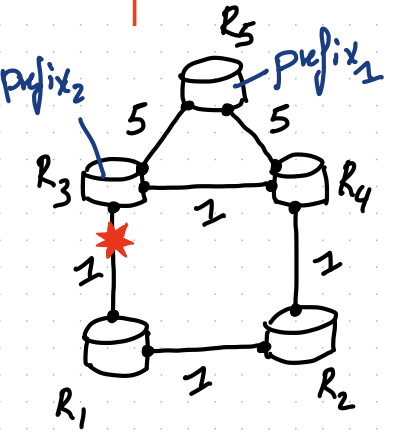 R5
prefix1
prefix2
5
5
R3
R4
1
1
1
1
R1
R2